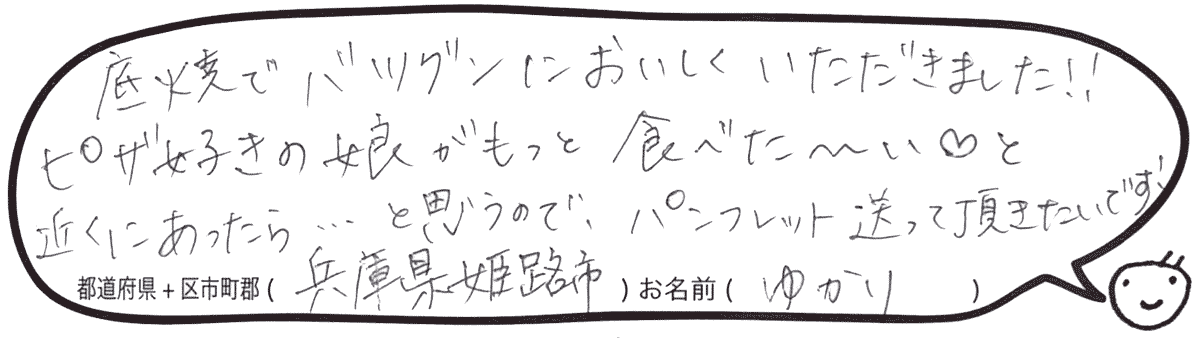 底焼でバツグンにおいしくいただきました!!
ピザ好きの娘がもっと食べた〜い♡と
近くにあったら…と思うので、パンフレット送って頂きたいです、
都道府県+区市町郡(兵庫県姫路市)お名前(ゆかり)